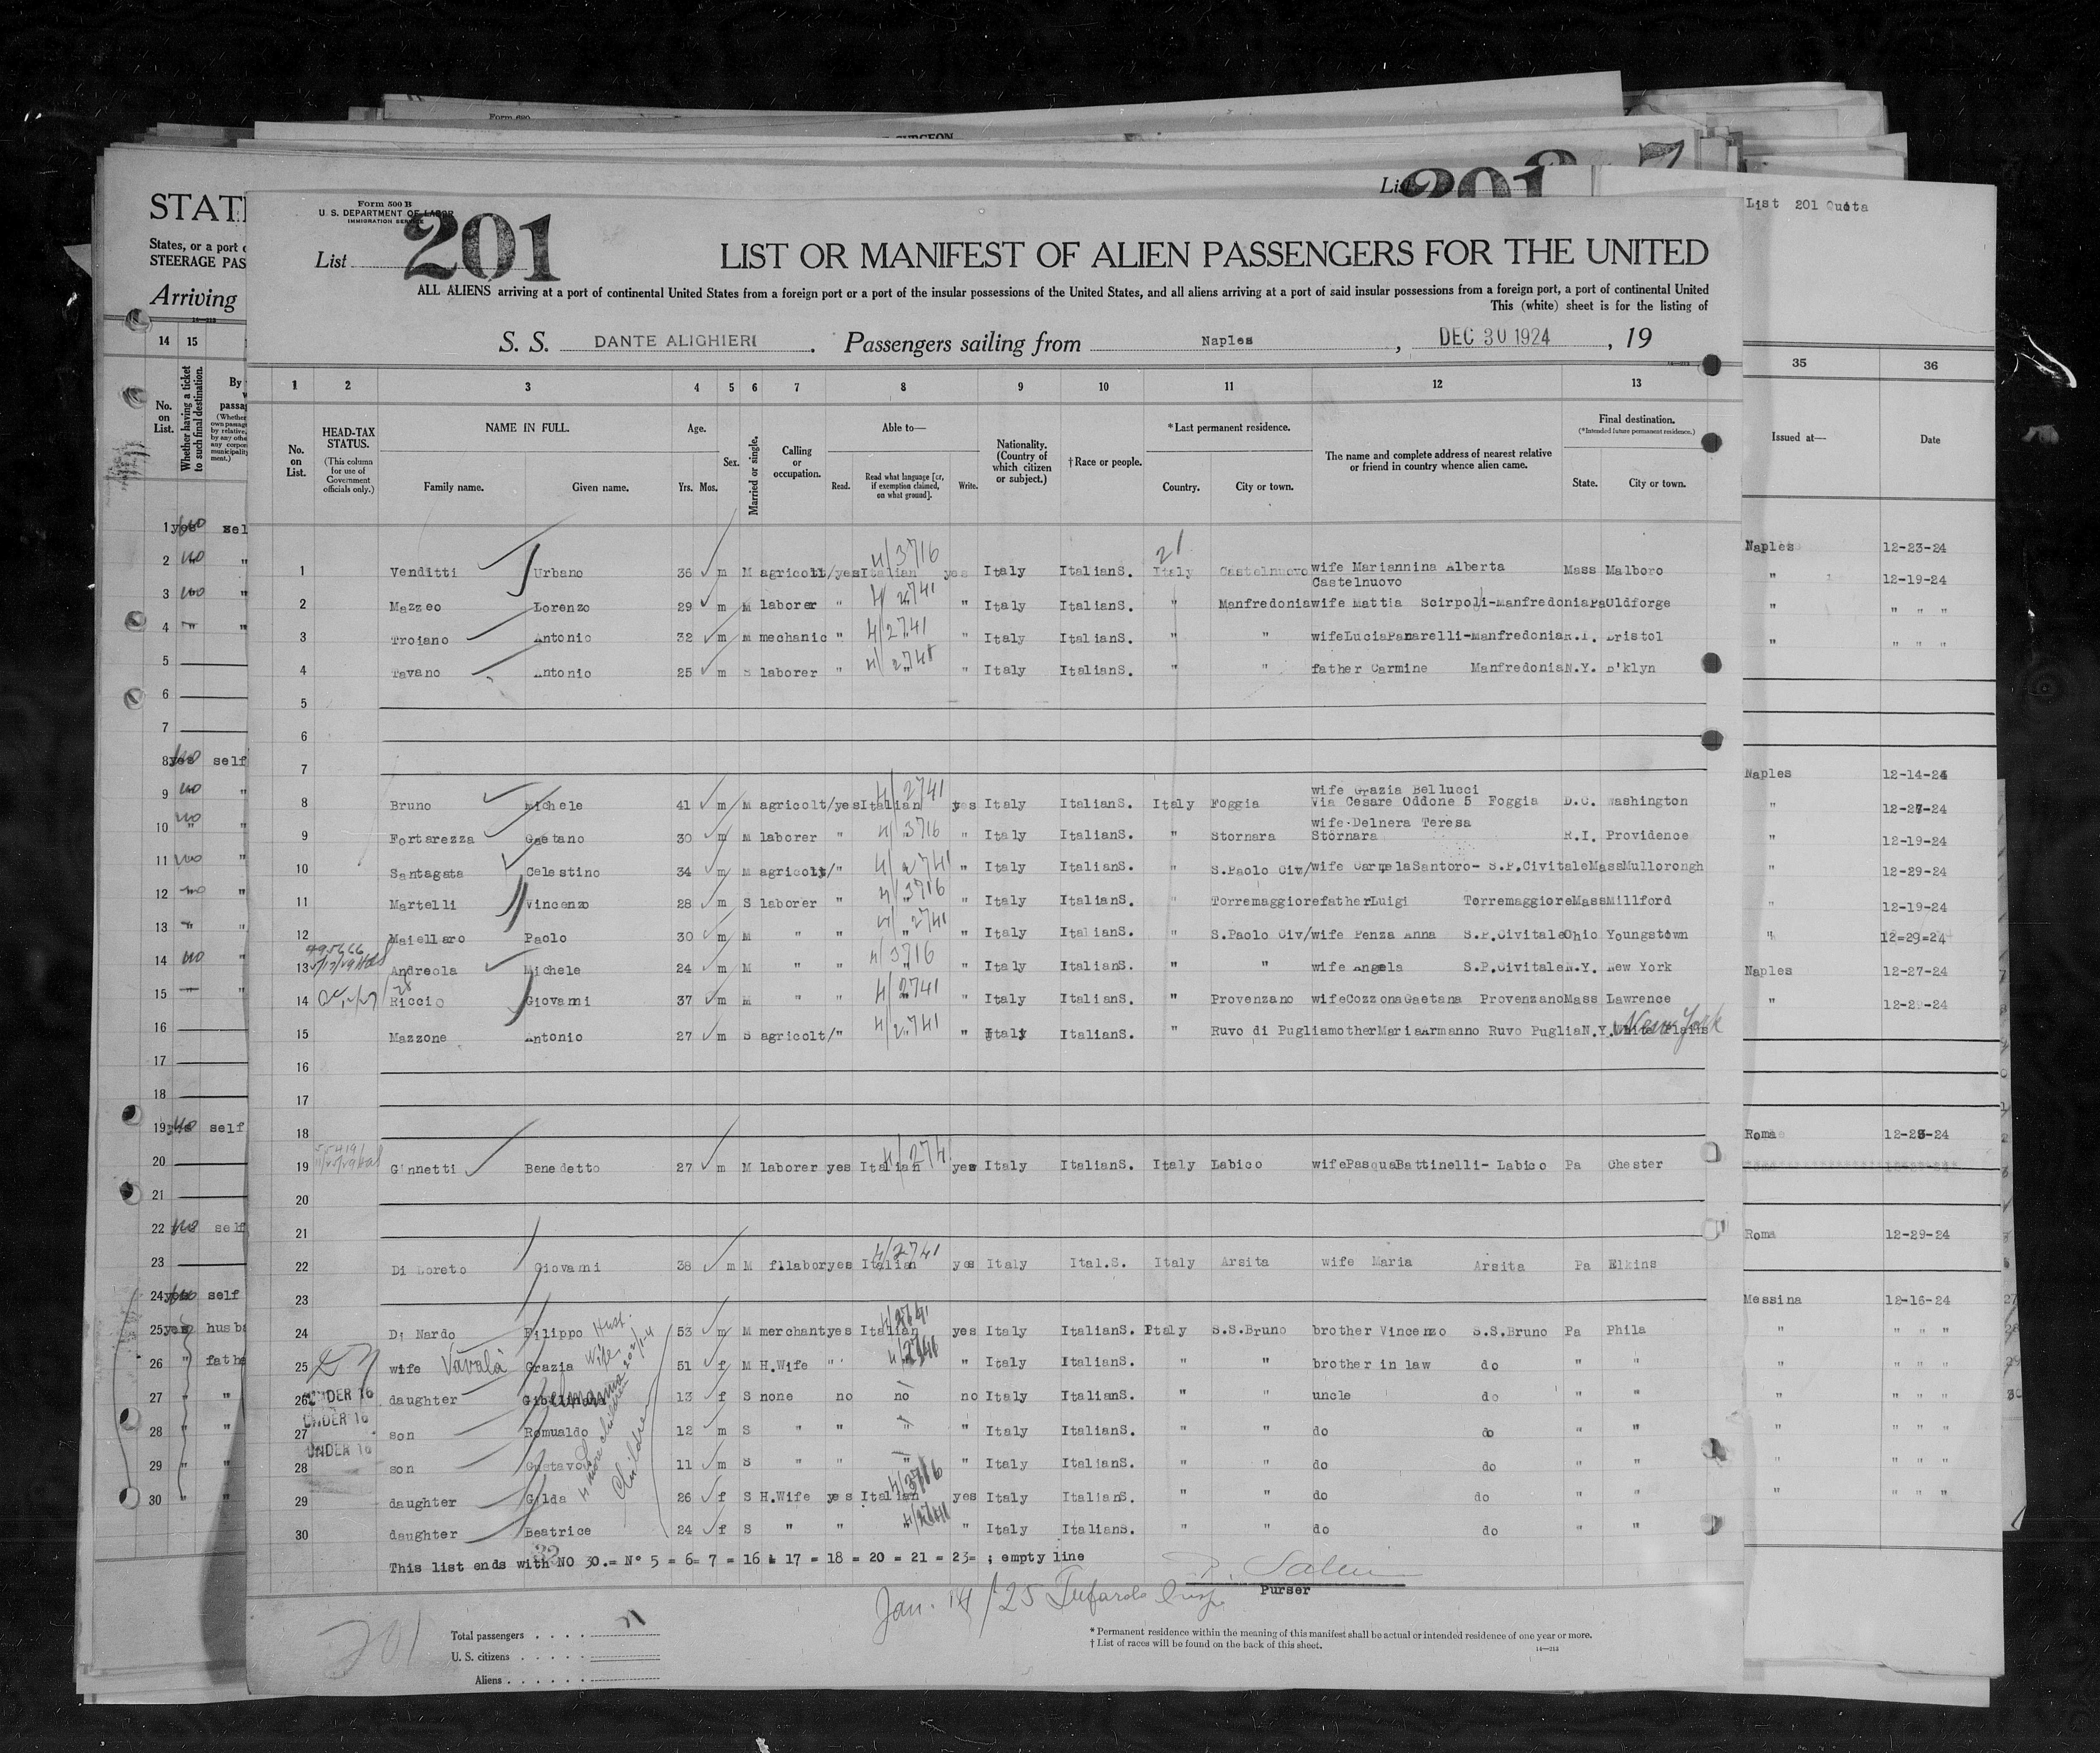 Form 680
SURGEON
List 201
List 201 Quota
STAT
States, or a port o
STEERAGE PAS
Arriving
Form 500 B
U. S. DEPARTMENT OF LABOR
IMMIGRATION SERVICE
List 201
LIST OR MANIFEST OF ALIEN PASSENGERS FOR THE UNITED
ALL ALIENS arriving at a port of continental United States from a foreign port or a port of the insular possessions of the United States, and all aliens arriving at a port of said insular possessions from a foreign port, a port of continental United
This (white) sheet is for the listing of
S. S. DANTE ALIGHIERI . Passengers sailing from Naples , DEC 30 1924 , 19
14 15
1 2 3 4 5 6 7 8 9 10 11 12 13
35 36
No. on List. Whether having a ticket to such final destination. By
No. on List.
HEAD-TAX STATUS.
(This column for use of Government officials only.)
NAME IN FULL.
Family name. Given name.
Age.
Yrs. Mos.
Sex.
Married or single.
Calling or occupation.
Able to—
Read. Read what language [or, if exemption claimed, on what ground]. Write.
Nationality. (Country of which citizen or subject.)
†Race or people.
*Last permanent residence.
Country. City or town.
The name and complete address of nearest relative or friend in country whence alien came.
Final destination.
(*Intended future permanent residence.)
State. City or town.
Issued at— Date
21
1 Venditti Urbano 36 m M agricolt/yes Italian yes 4/3716 Italy ItalianS. Italy Castelnuovo wife Mariannina Alberta Castelnuovo Mass Malboro Naples 12-23-24
2 Mazzeo Lorenzo 29 m M laborer " 4/2741 " Italy ItalianS. " Manfredonia wife Mattia Scirpoli-Manfredonia Pa Oldforge " 12-19-24
3 Troiano Antonio 32 m M mechanic " 4/2741 " Italy ItalianS. " " wife Lucia Panarelli-Manfredonia R.I. Bristol " " " "
4 Tavano Antonio 25 m S laborer " 4/2741 " Italy ItalianS. " " father Carmine Manfredonia N.Y. B'klyn " " " "
5
6
7
8 Bruno Michele 41 m M agricolt/yes Italian yes 4/2741 Italy ItalianS. Italy Foggia wife Grazia Bellucci Via Cesare Oddone 5 Foggia D.C. Washington Naples 12-14-24
9 Fortarezza Gaetano 30 m M laborer " 4/3716 " Italy ItalianS. " Stornara wife Delnera Teresa Stornara R.I. Providence " 12-27-24
10 Santagata Celestino 34 m M agricolt/" 4/2741 " Italy ItalianS. " S.Paolo Civ/ wife CarmelaSantoro- S.P.Civitale Mass Mullorongh " 12-19-24
11 Martelli Vincenzo 28 m S laborer " 4/3716 " Italy ItalianS. " Torremaggiore father Luigi Torremaggiore Mass Millford " 12-29-24
12 Maiellaro Paolo 30 m M " " 4/2741 " Italy ItalianS. " S.Paolo Civ/ wife Penza Anna S.P.Civitale Ohio Youngstown " 12-19-24
13 Andreola Michele 24 m M " " 4/3716 " Italy ItalianS. " " wife Angela S.P.Civitale N.Y. New York " 12=29=24
14 Riccio Giovanni 37 m M " " 4/2741 " Italy ItalianS. " Provenzano wife CozzonaGaetana Provenzano Mass Lawrence Naples 12-27-24
15 Mazzone Antonio 27 m S agricolt/" 4/2741 " Italy ItalianS. " Ruvo di Puglia mother MariaArmanno Ruvo Puglia N.Y. White Plains New York " 12-29-24
16
17
18
19 Ginnetti Benedetto 27 m M laborer yes Italian yes 4/2741 Italy ItalianS. Italy Labico wife PasquaBattinelli- Labico Pa Chester Roma 12-23-24
20
21
22 Di Loreto Giovanni 38 m M f.labor yes Italian yes 4/2741 Italy Ital.S. Italy Arsita wife Maria Arsita Pa Elkins Roma 12-29-24
23
24 Di Nardo Filippo Hust. 53 m M merchant yes Italian yes Italy ItalianS. Italy S.S.Bruno brother Vincenzo S.S.Bruno Pa Phila Messina 12-16-24
25 wife Vavalà Grazia Wife 51 f M H.Wife " " Italy ItalianS. " " brother in law do " " " " " "
26 UNDER 16 daughter 13 f S none no no no Italy ItalianS. " " uncle do " " " " " "
27 UNDER 16 son Romualdo 12 m S " " " " Italy ItalianS. " " do do " " " " " "
28 UNDER 16 son Gustavo 11 m S " " " Italy ItalianS. " " do do " " " " " "
29 daughter Gilda 26 f S H.Wife yes Italian yes 4/3716 Italy ItalianS. " " do do " " " " " "
30 daughter Beatrice 24 f S " " " " Italy ItalianS. " " do do " " " " " "
Children
This list ends with NO 30.= N° 5 = 6= 7 = 16 = 17 = 18 = 20 = 21 = 23= ; empty line
32
Purser
Jan. 14/25 Tufarolo Insp.
201
Total passengers 21
U. S. citizens
Aliens
* Permanent residence within the meaning of this manifest shall be actual or intended residence of one year or more.
† List of races will be found on the back of this sheet.
14—213